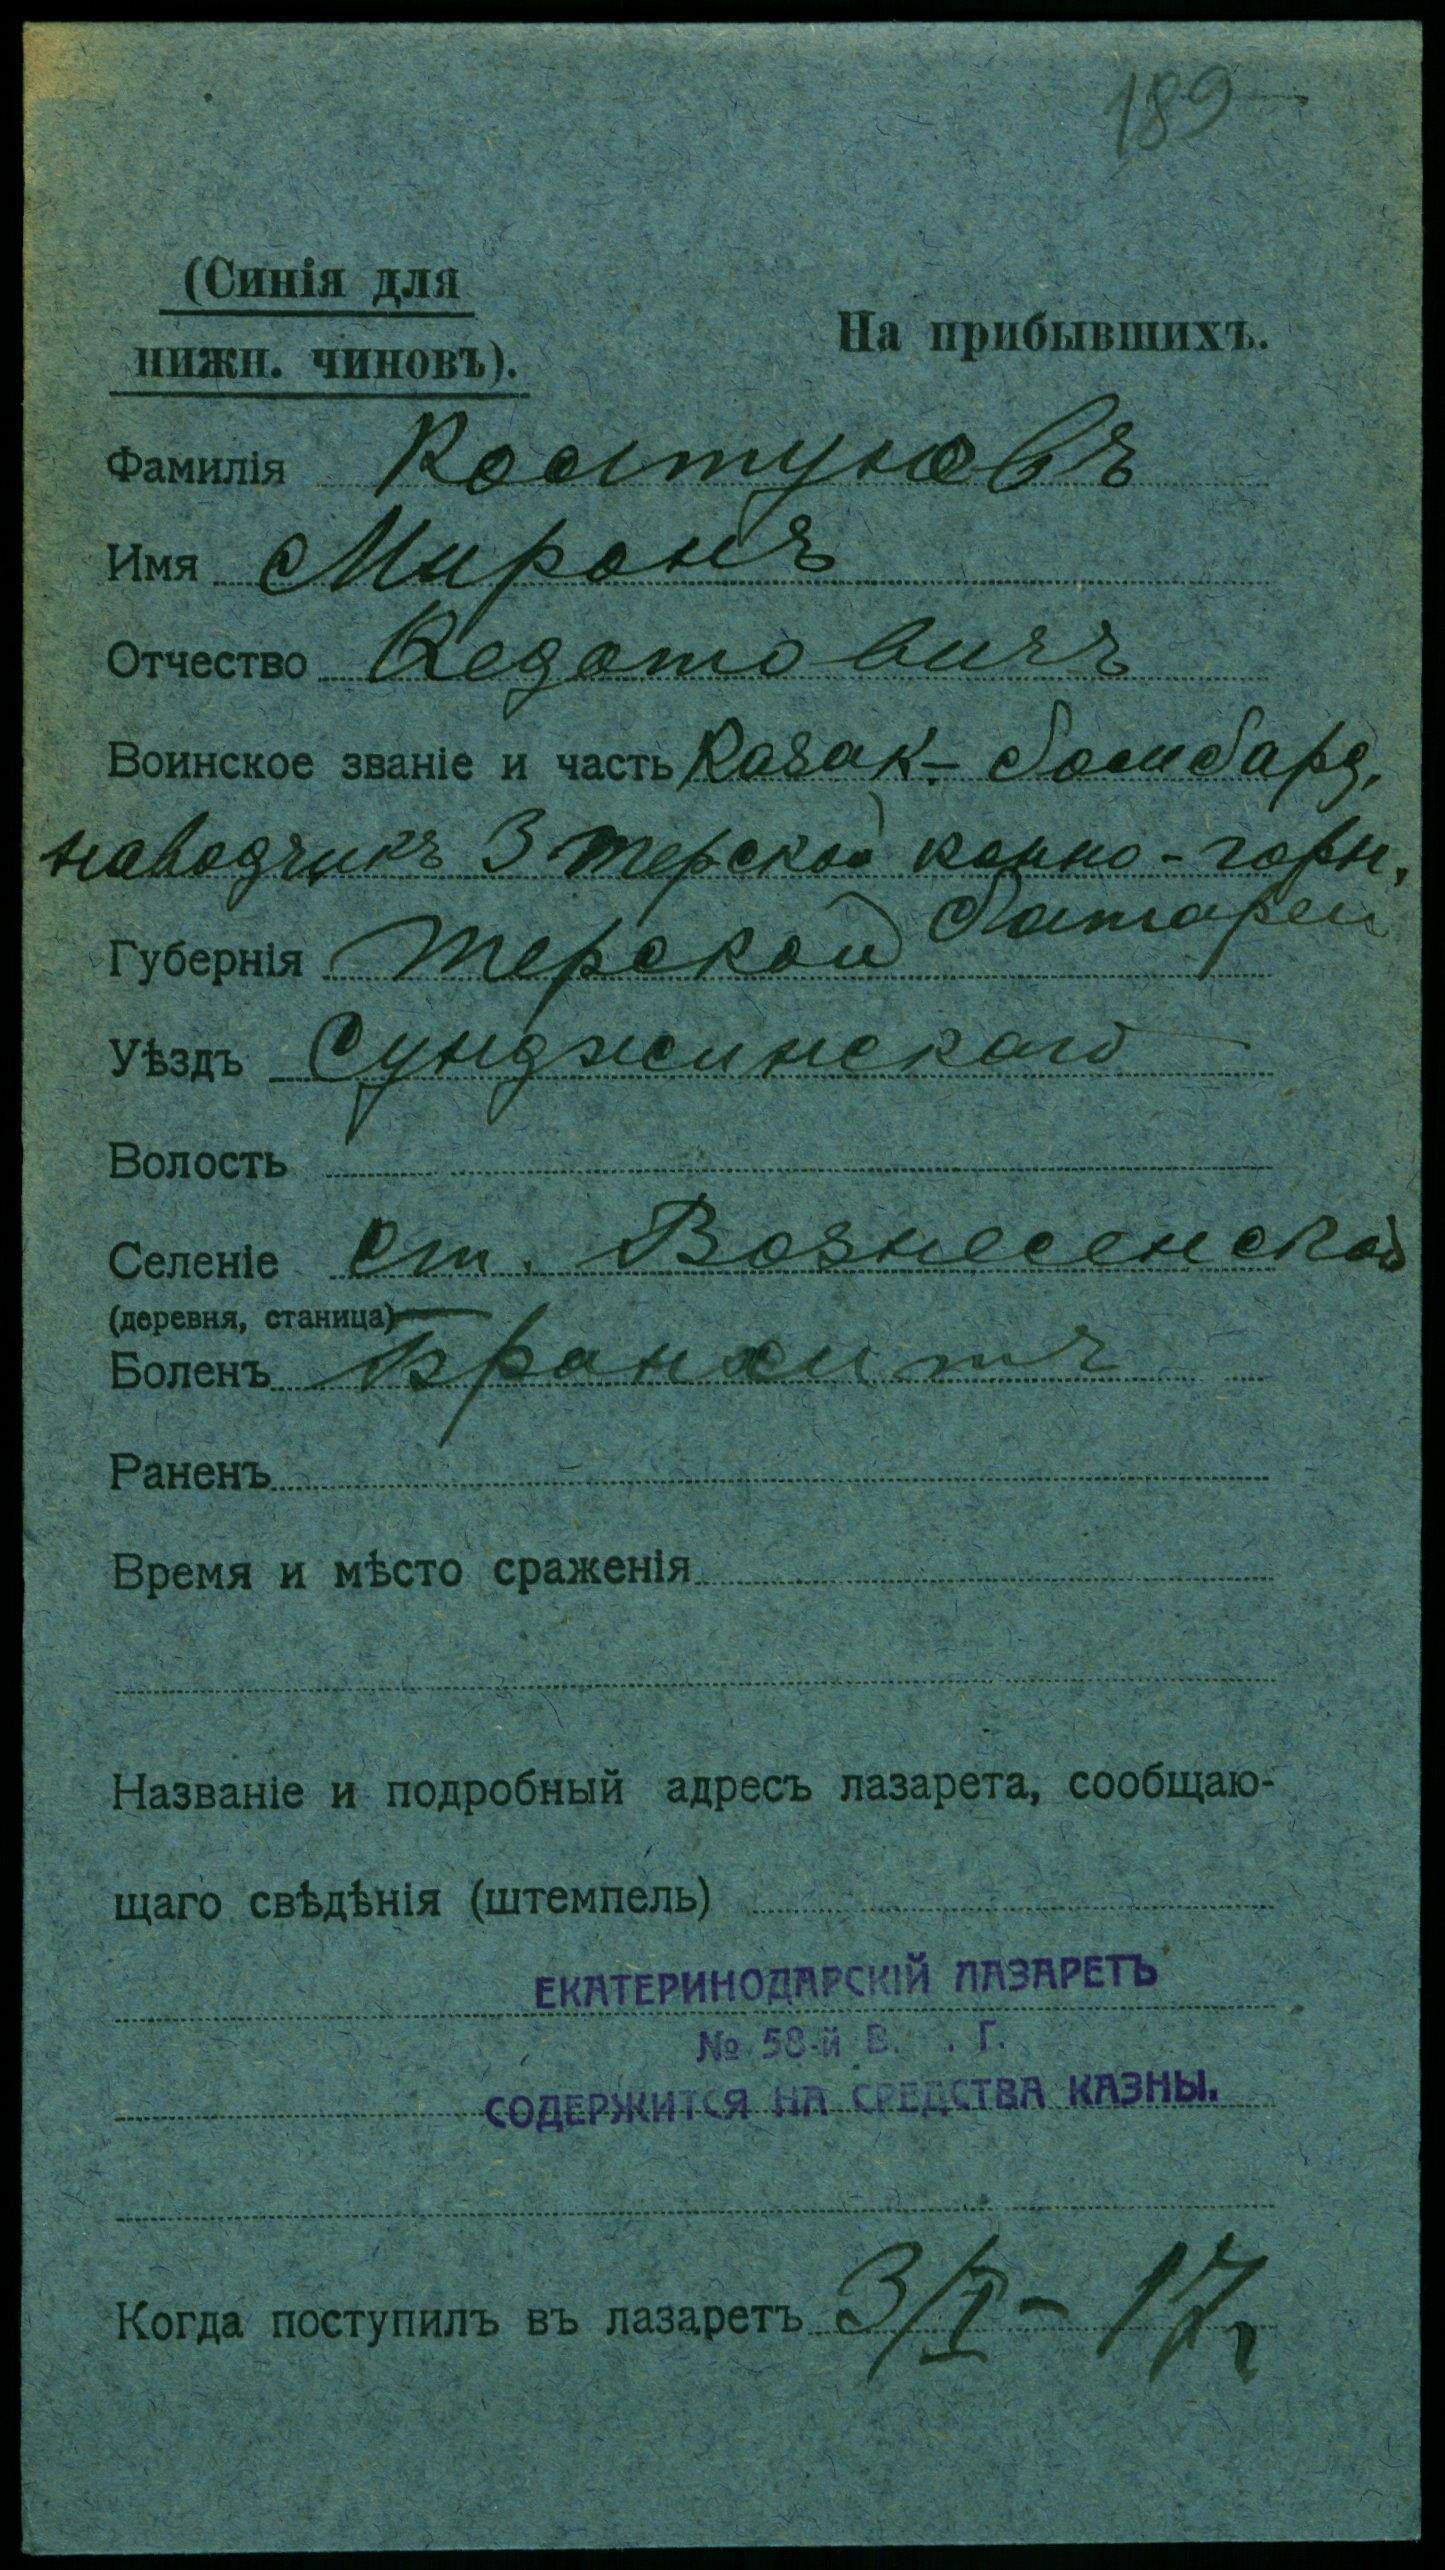 189
(Синія для
нижн. чиновъ).
На прибывшихъ.
Фамилія Колтуновъ
Имя Миронъ
Отчество Кедотовичъ
Воинское званіе и часть Казак-бомбард.
наводчикъ 3 Терской конно-горн.
батареи
Губернія Терской
Уѣздъ Сунджинскаго
Волость
Селеніе ст. Вознесенской
(деревня, станица)
Боленъ Бранхитъ
Раненъ
Время и мѣсто сраженія
Названіе и подробный адресъ лазарета, сообщаю-
щаго свѣдѣнія (штемпель)
ЕКАТЕРИНОДАРСКІЙ ЛАЗАРЕТЪ
№ 58-й В. . Г.
СОДЕРЖИТСЯ НА СРЕДСТВА КАЗНЫ.
Когда поступилъ въ лазаретъ 3/I-17